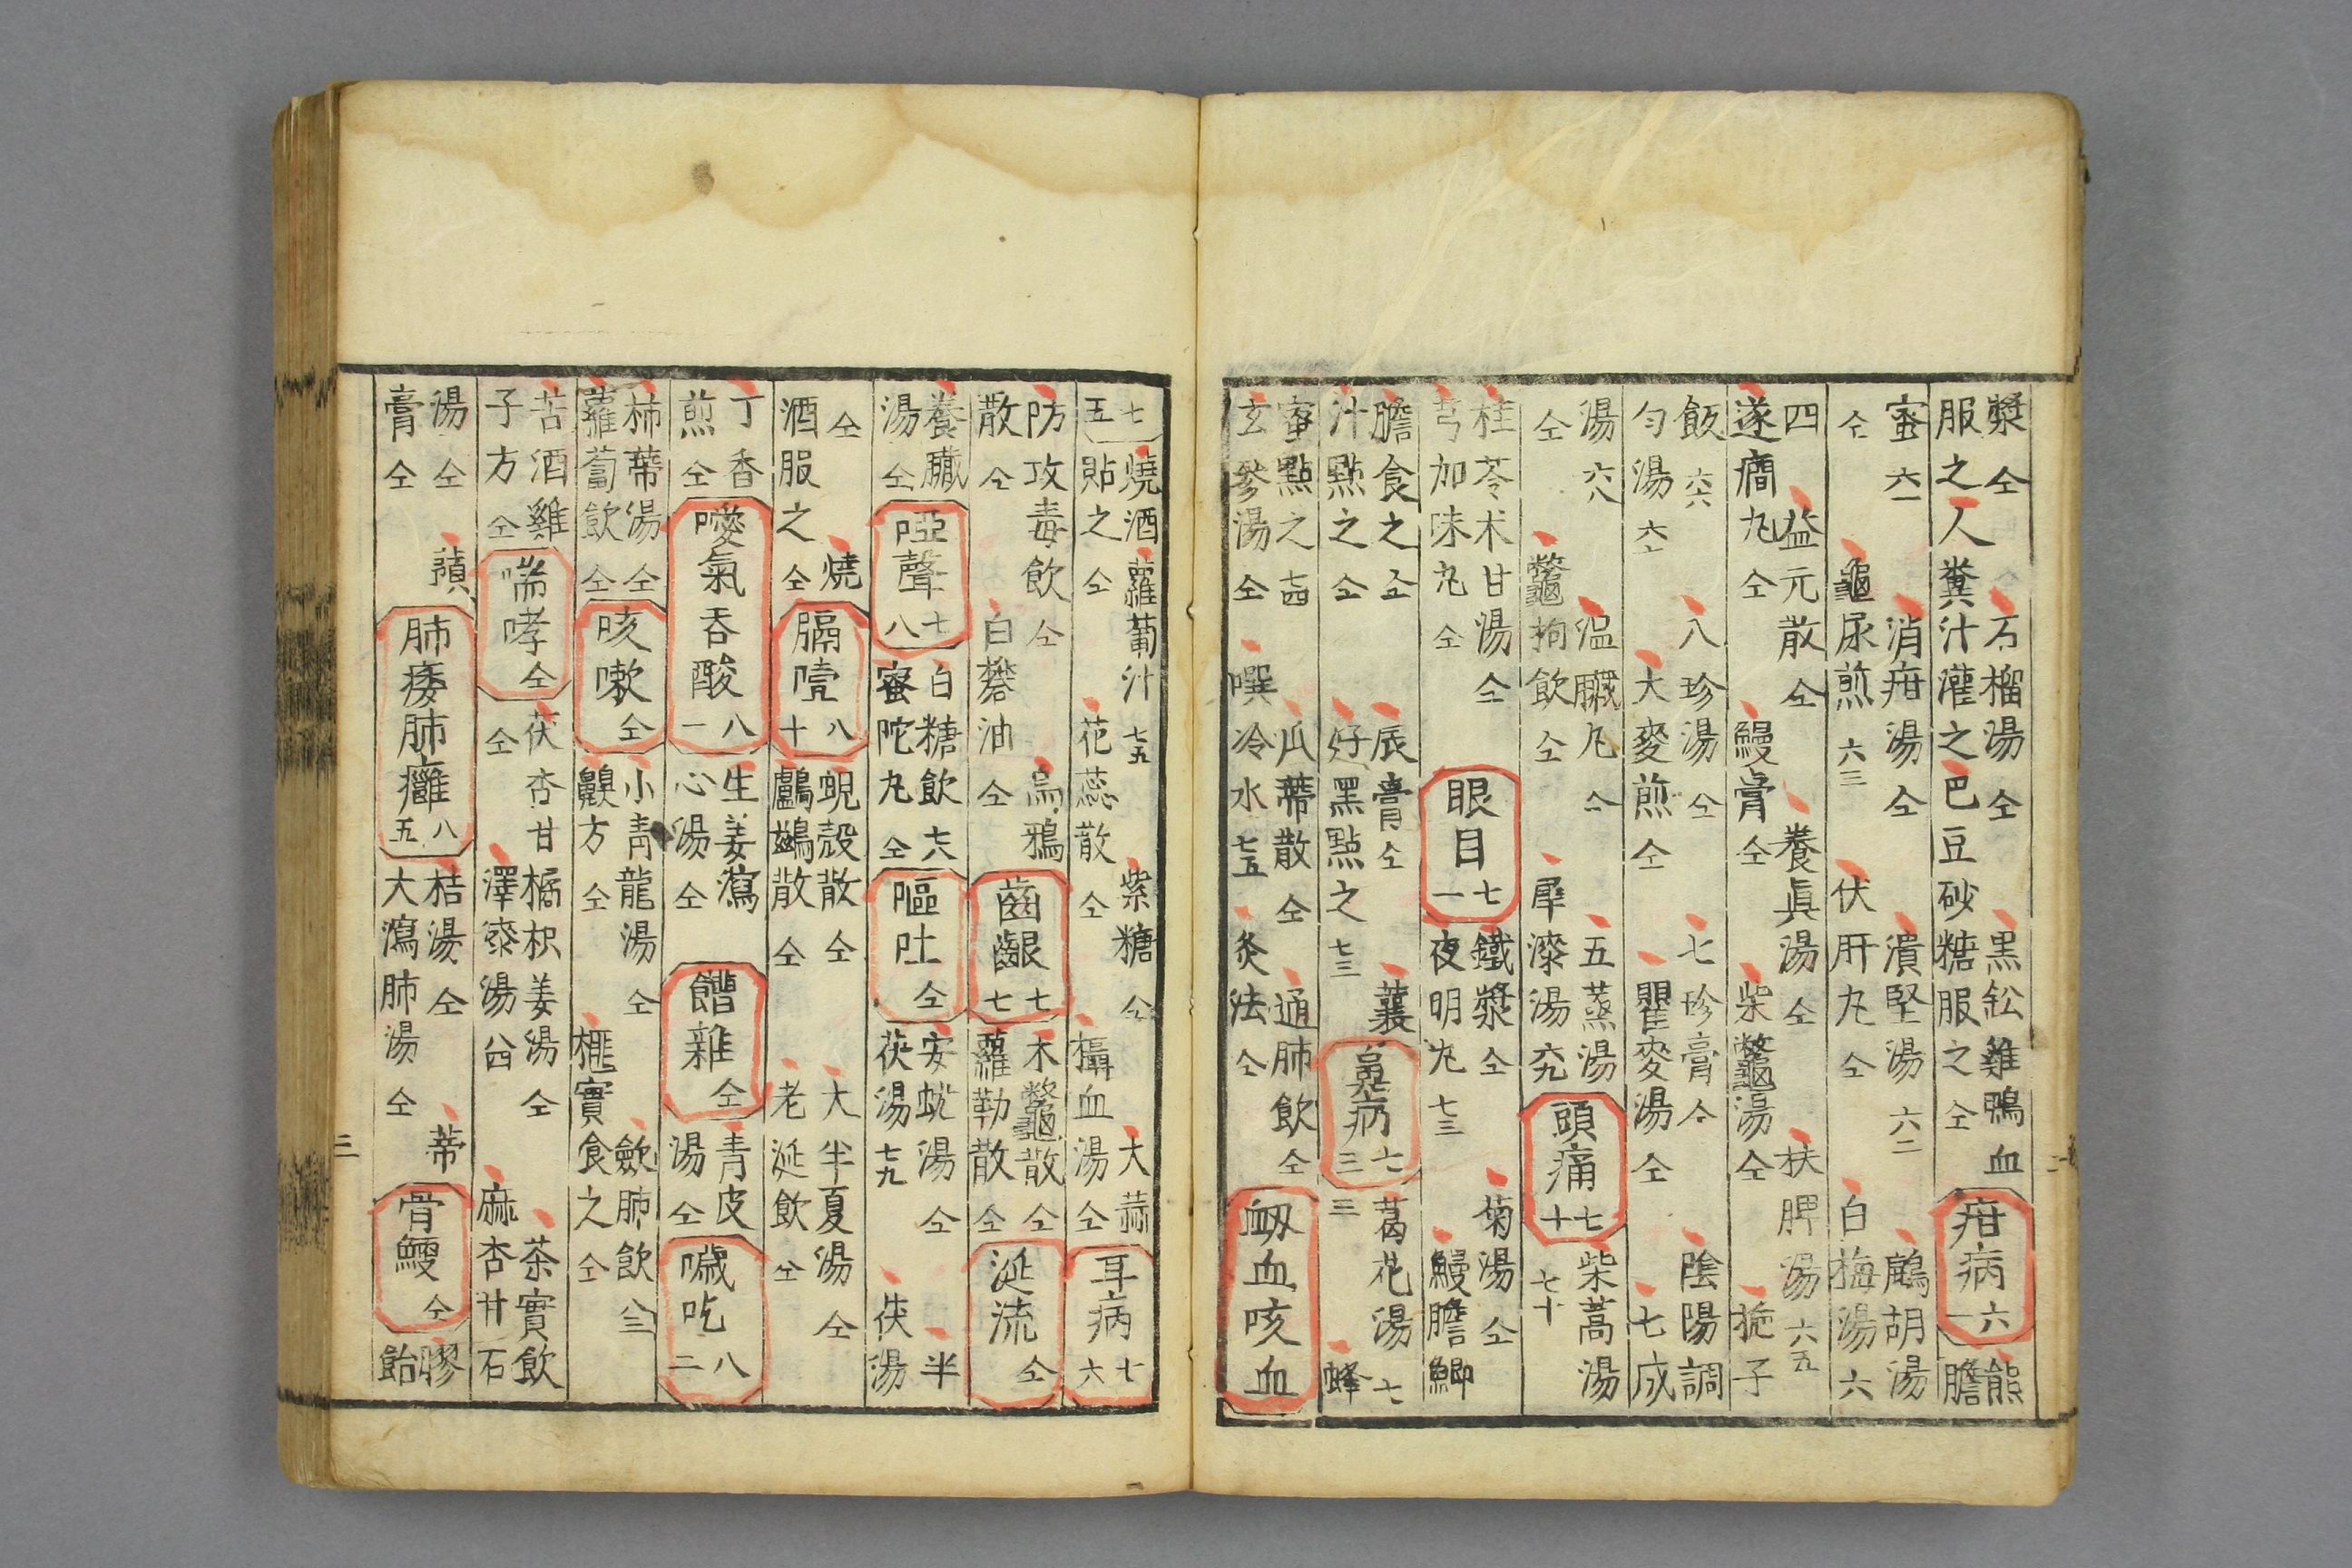 漿仝 石榴湯仝 黒鈆雞鴨血 疳病六一 熊
服之 人糞汁灌之 巴豆砂糖服之仝 膽
蜜六一 消疳湯仝 潰堅湯六二 鷓胡湯
仝 龜尿煎六三 伏肝丸仝 白梅湯六
四 益元散仝 養眞湯仝 扶脾湯六五
遂癎丸仝 鰻膏仝 柴鱉湯仝 梔子
飯六六 八珍湯仝 七珍膏仝 陰陽調
匀湯六七 大麥煎仝 瞿麥湯仝 七成
湯六八 温臓丸仝 五蒸湯 頭痛七十 柴蒿湯
仝 鱉拘飲仝 犀漆湯究 七十
桂苓术甘湯仝 眼目七一 鐵漿仝 菊湯仝
芎加味丸仝 夜明丸七三 鰻膽鯽
膽食之仝 辰膏仝 蓑 鼻病七三 葛花湯七
汁點之仝 好黑點之七三 三 蜂
蜜點之七四 瓜蒂散仝 通肺飲仝 衂血咳血
玄參湯仝 噀冷水七五 灸法仝
七 燒酒蘿蔔汁七五 紫糖仝 大蒜 耳病七六
五 貼之仝 花蕊散仝 攝血湯仝
防攻毒飲仝 烏鴉 齒齦七七 木鱉散仝 涎流仝
散仝 白礬油仝 蘿勒散仝
養臓 啞聲七八 白糖飲七八 嘔吐仝 安蚘湯仝 半
湯仝 蜜陀丸仝 茯湯七九 茯湯
仝 燒 膈噎八十 蜆殼散仝 大半夏湯仝
酒服之仝 鸕鷀散仝 老涎飲仝
丁香 噯氣吞酸八一 生姜瀉 饐雜仝 青皮 噦吃八二
煎仝 心湯仝 湯仝
柿蒂湯仝 咳嗽仝 小青龍湯仝 歛肺飲八三
蘿蔔飲仝 齅方仝 榧實食之仝
苦酒雞 喘哮仝 茯杏甘橘枳姜湯仝 茶實飲
子方仝 仝 澤漆湯八四 麻杏甘石
湯仝 蘋 肺痿肺癰八五 桔湯仝 蒂 骨鯁仝 膠
膏仝 大瀉肺湯仝 飴
三